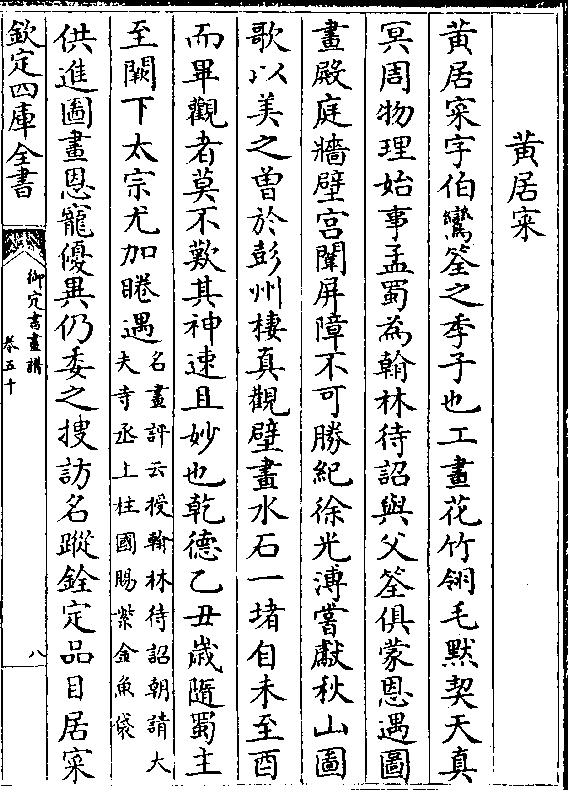 黃居寀
黃居寀字伯鸞筌之季子也工畫花竹翎毛默契天真
冥周物理始事孟蜀為翰林待詔與父筌俱蒙恩遇圖
畫殿庭牆壁宮闈屏障不可勝紀徐光溥嘗獻秋山圖
歌以美之曽於彭州棲真觀壁畫水石一堵自未至酉
而畢觀者莫不歎其神速且妙也乾德乙丑歲隨蜀主
至闕下太宗尤加睠遇名畫評云授翰林待詔朝請大
夫寺丞上柱國賜紫金魚袋
供進圖畫恩寵優異仍委之搜訪名蹤銓定品目居寀
欽定四庫全書
御定書畫譜
卷五十
八